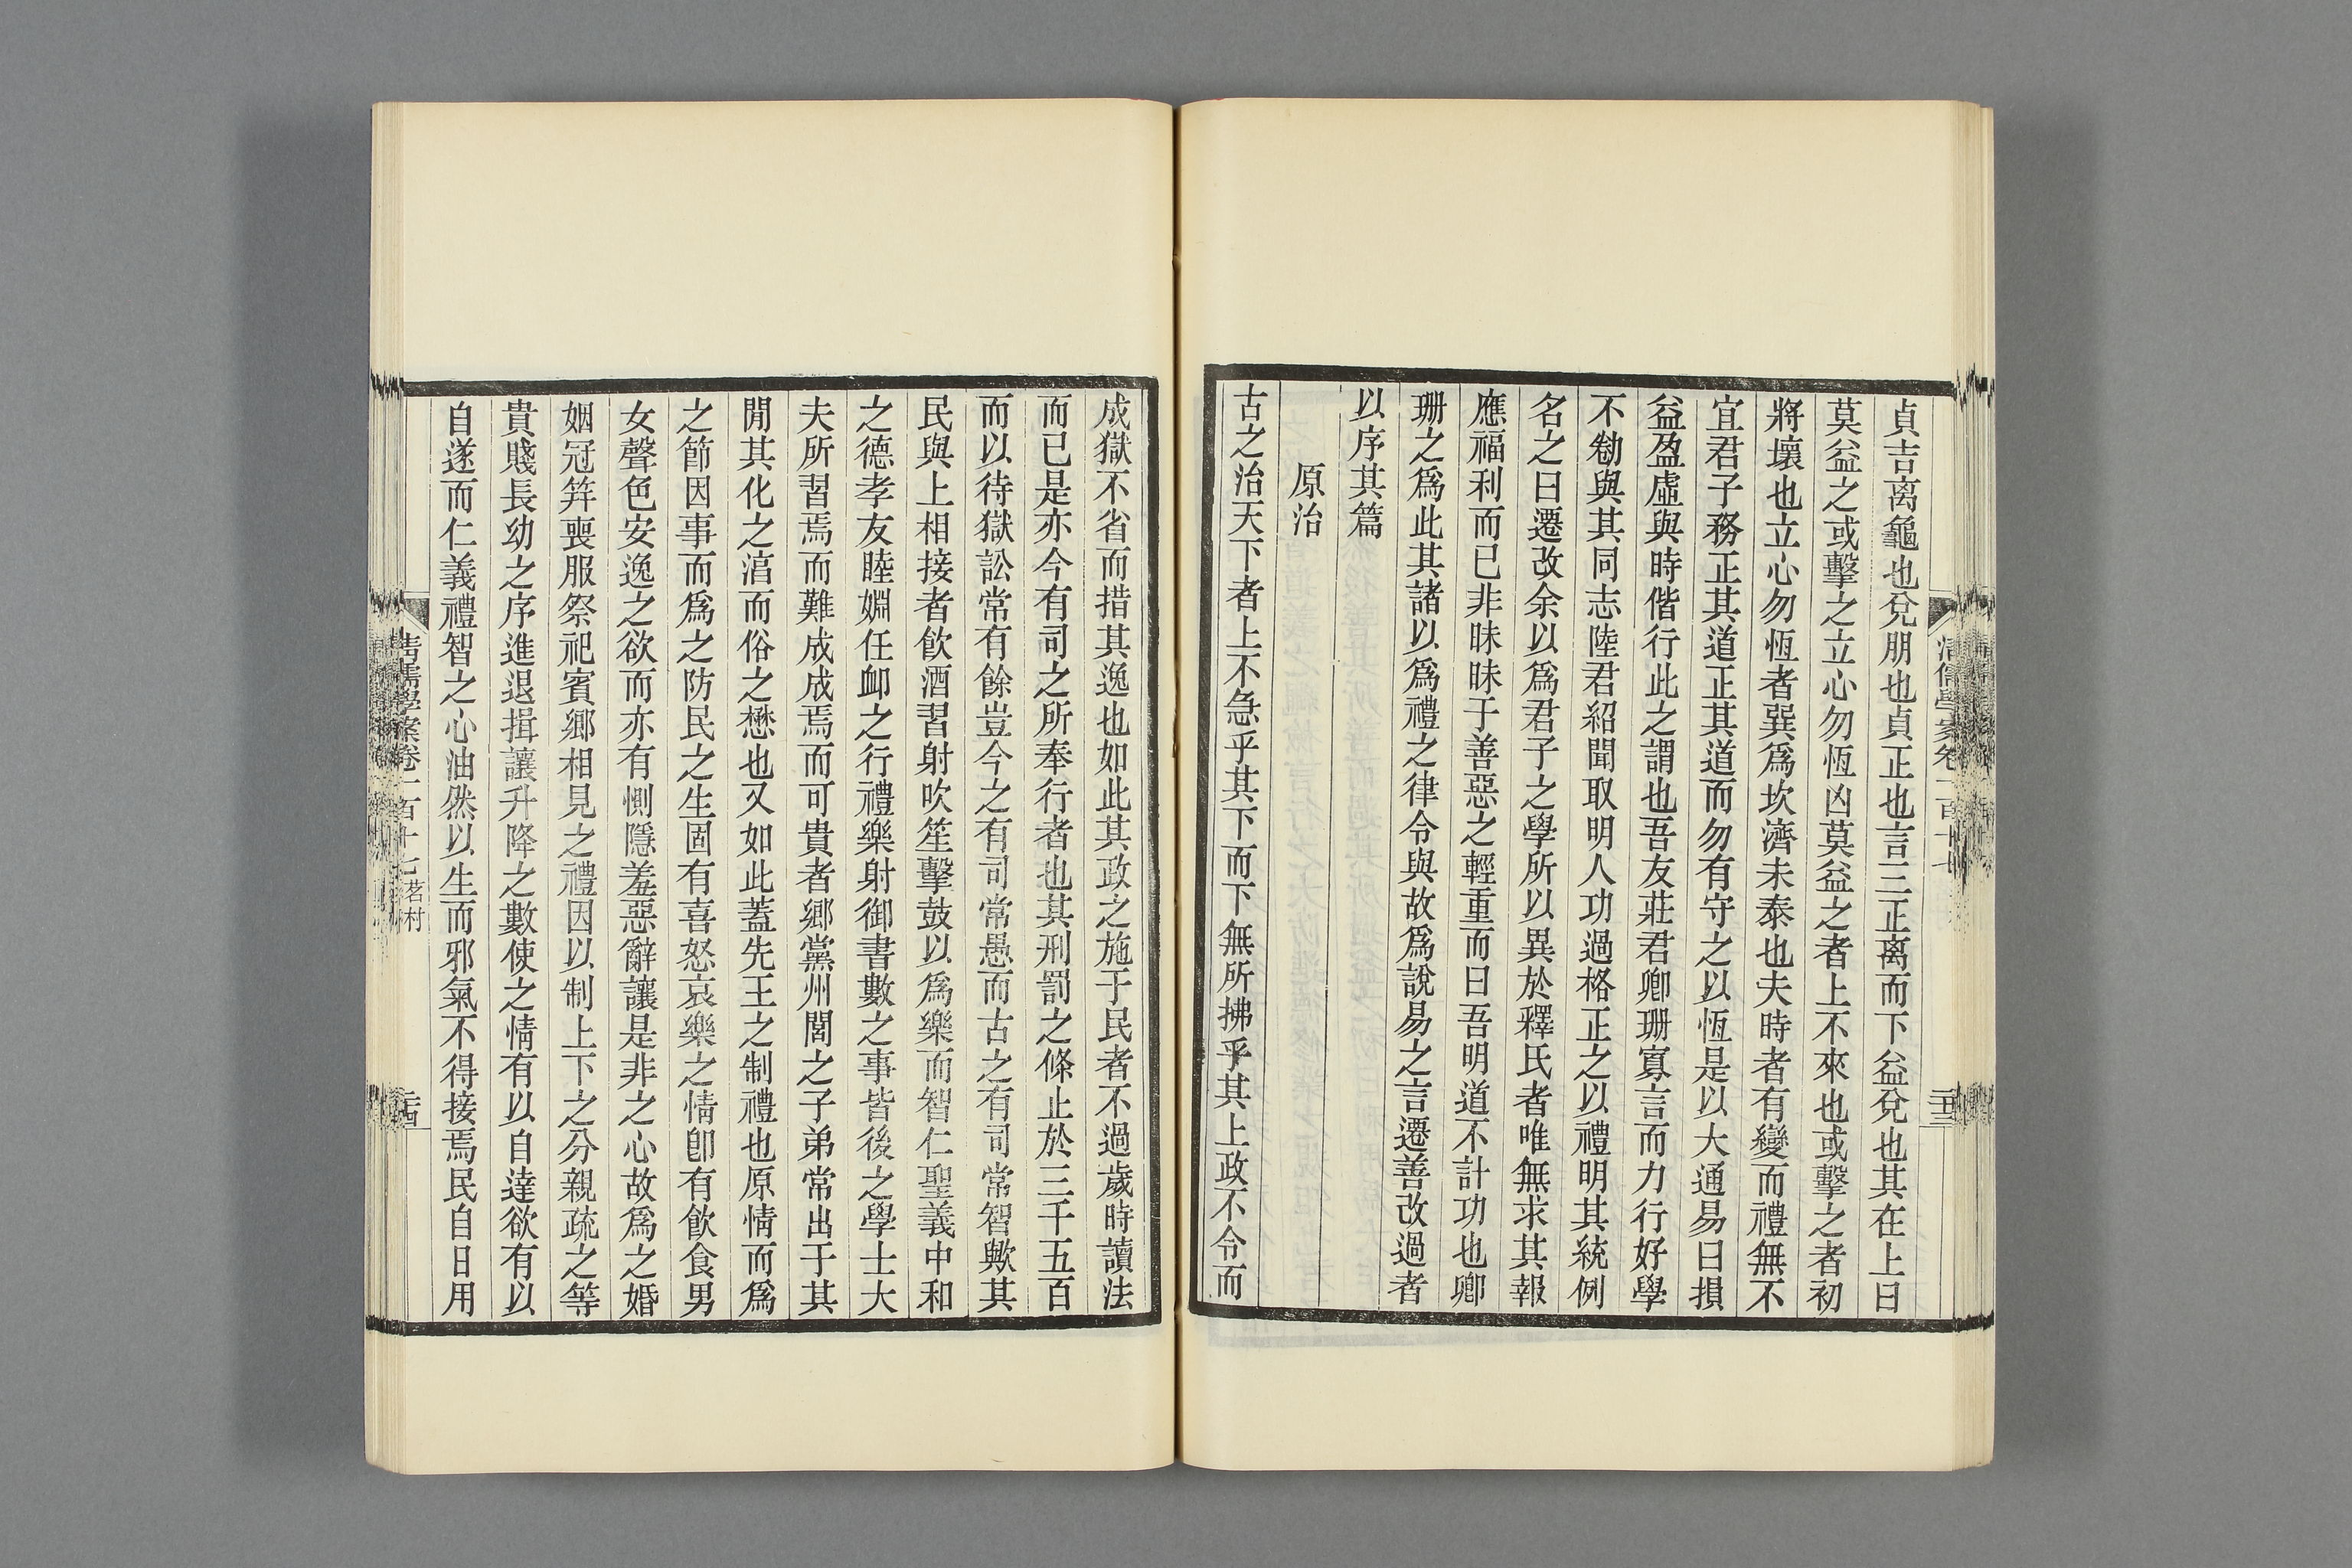 貞吉离龜也兌朋也貞正也言三正离而下益兌也其在上曰
莫益之或擊之立心勿恆凶莫益之者上不來也或擊之者初
將壞也立心勿恆者巽爲坎濟未泰也夫時者有變而禮無不
宜君子務正其道正其道而勿有守之以恆是以大通易曰損
益盈虛與時偕行此之謂也吾友莊君卿珊寡言而力行好學
不勌與其同志陸君紹聞取明人功過格正之以禮明其統例
名之曰遷改余以爲君子之學所以異於釋氏者唯無求其報
應福利而已非昧昧于善惡之輕重而曰吾明道不計功也卿
珊之爲此其諸以爲禮之律令與故爲說易之言遷善改過者
以序其篇
原治
古之治天下者上不急乎其下而下無所拂乎其上政不令而
清儒學案卷一百十七
二十三
成獄不省而措其逸也如此其政之施于民者不過歲時讀法
而已是亦今有司之所奉行者也其刑罰之條止於三千五百
而以待獄訟常有餘豈今之有司常愚而古之有司常智歟其
民與上相接者飲酒習射吹笙擊鼓以爲樂而智仁聖義中和
之德孝友睦婣任卹之行禮樂射御書數之事皆後之學士大
夫所習焉而難成成焉而可貴者鄉黨州閭之子弟常出于其
閒其化之湻而俗之懋也又如此蓋先王之制禮也原情而爲
之節因事而爲之防民之生固有喜怒哀樂之情卽有飲食男
女聲色安逸之欲而亦有惻隱羞惡辭讓是非之心故爲之婚
姻冠笄喪服祭祀賓鄉相見之禮因以制上下之分親疏之等
貴賤長幼之序進退揖讓升降之數使之情有以自達欲有以
自遂而仁義禮智之心油然以生而邪氣不得接焉民自日用
清儒學案卷一百十七 茗村
二十四